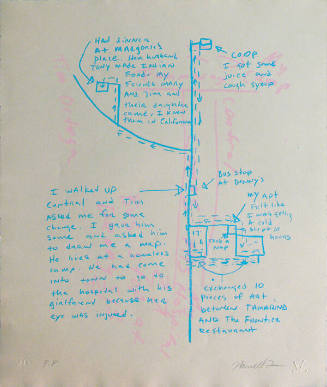 Had dinner
at Margorie's
place. Her husband
Tony made Indian
food. My
friends Mary
and Jim and
their daughter
came. I knew
them in California
CO.OP
I got some
juice and
cough syrup
Bus stop
at Denny's
I walked up
Central and Tim
asked me for some
change. I gave him
some and asked him
to draw me a map.
He lives at a homeless
camp. We had come
into town to go to
the hospital with his
girlfriend because her
eye was injured.
my apt
I felt like
I was getting
a cold
slept 12
hours
Took a
nap
exchanged 10
pieces of art
between TAMARIND
and The Frontier
Restaurant